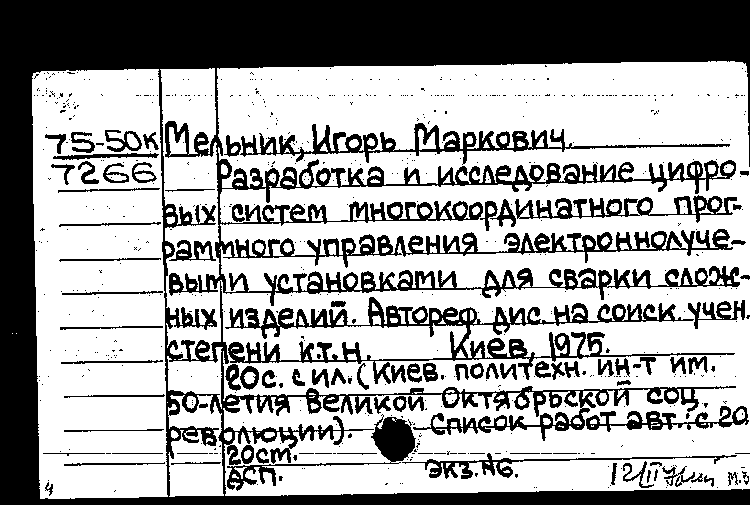 75-50к Мельник, Игорь Маркович.
7266 Разработка и исследование цифро-
вых систем многокоординатного прог-
раммного управления электроннолуче-
выми установками для сварки слож-
ных изделий. Автореф. дис. на соиск. учен.
степени к.т.н. Киев, 1975.
20с. с ил. (Киев. политехн. ин-т им.
50-летия Великой Октябрьской соц.
революции). Список работ авт.: с. 20
20см.
ДСП. экз. №6. 12/II
4